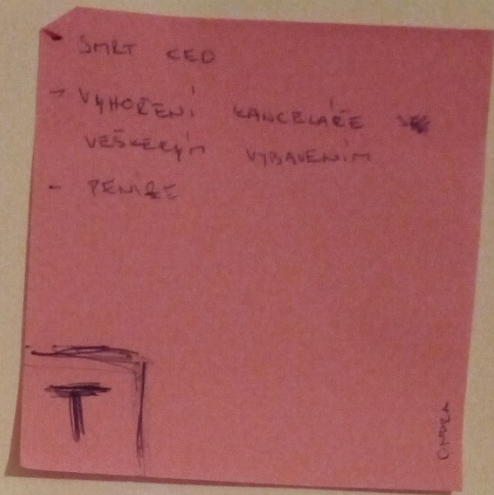 - SMRT CEO
- VYHOŘENÍ KANCELÁŘE SE
VEŠKERÝM VYBAVENÍM
- PENÍZE
T